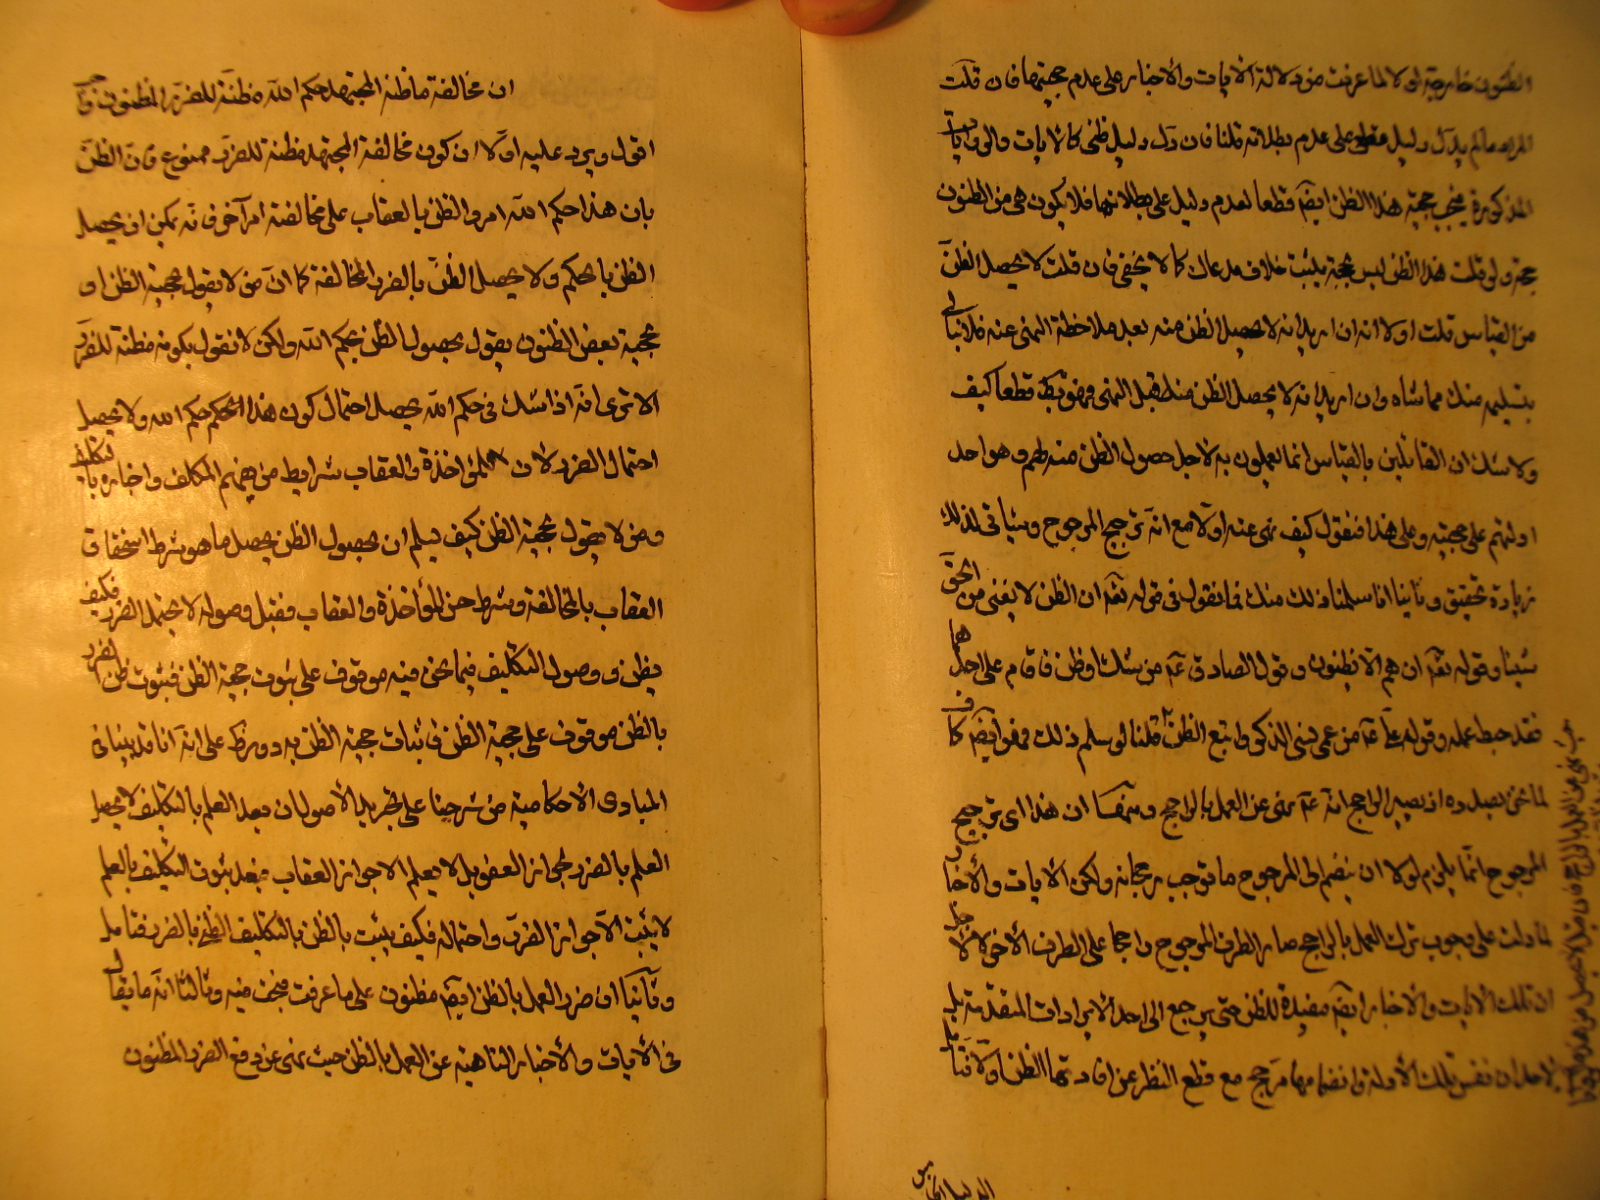 الظنون خارجة لولا لما عرفت من دلالة الآيات والأخبار على عدم حجيتها فان قلت
المراد ما لم يدل دليل على عدم بطلانه قلنا فان دل دليل ظنى كالآيات والروايات
المذكورة يجب حجية هذا الظن ايضا قطعا لعدم دليل على بطلانها فلا يكون هى من الظنون
حجة ولو قلت هذا الظن ليس بحجة يثبت خلاف مدعاك كما لا يخفى فان قلت لا يحصل الظن
من القياس قلت اولا انه ان اريد انه لا يحصل الظن منه بعد ملاحظة النهى عنه فلا نبالى
بتسليمه منك مماشاه وان اريد انه لا يحصل الظن منه قبل النهى فهو بط قطعا كيف
ولا شك ان القائلين بالقياس انما يعملون به لاجل حصول الظن منه لهم وهو احد
ادلتهم على حجيته وعلى هذا فنقول كيف نهى عنه اولا مع انه ترجيح المرجوح وسياتى لذلك
زيادة تحقيق وثانيا انا سلمنا ذلك منك فما نقول فى قوله تعه ان الظن لا يغنى من الحق
شيئا وقوله تعه ان هم الا يظنون وقول الصادق عه من شك او ظن فاقام على احدهما
فقد حبط عمله وقوله عه من عمى نسى الذكر واتبع الظن قلنا لو سلم ذلك فهو ايضا كاف
لما نحن بصدده اذ يصير الراجح انه عه نهى عن العمل بالراجح ان هذا اى ترجيح
المرجوح انما يلزم لولا ان ينضم الى المرجوح ما توجب رجحانه ولكن الآيات والأخبار
لما دلت على وجوب ترك العمل بالراجح صار الطرف المرجوح راجحا على الطرف الآخر لا لاجل
ان تلك الآيات والاخبار ايضا مفيدة للظن حتى يرجع الى احد الايرادات المتقدمة بل
لاجل ان نفس تلك الأدلة وانضمامها مرجح مع قطع النظر عن افادتها الظن اولا فتامل
ان مخالفة ما ظنه المجتهد حكم الله مظنة للضرر المظنون
اقول ويرد عليه اولا ان كون مخالفة المجتهد مظنة للضرر ممنوع فان الظن
بان هذا حكم الله امر والظن بالعقاب على مخالفته امر آخر فانه يمكن ان يحصل
الظن بالحكم ولا يحصل الظن بالضرر بالمخالفة كما ان من لا يقول بحجية الظن او
بحجية بعض الظنون يقول بحصول الظن بحكم الله ولكن لا نقول بكونه مظنة للضرر
الا ترى انه اذا شك فى حكم الله يحصل احتمال كون هذا الحكم حكم الله ولا يحصل
احتمال الضرر لان للمؤاخذة والعقاب شرايط من فهم المكلف واخباره بالتكليف
ومن لا يقول بحجية الظن كيف يسلم ان بحصول الظن يحصل ما هو شرط استحقاق
العقاب بالمخالفة وشرط حسن المؤاخذة والعقاب فقبل وصوله لا يحتمل الضرر فكيف
يظن ووصول التكليف فيما نحن فيه موقوف على ثبوت حجية الظن فثبوت ظن الضرر
بالظن موقوف على حجية الظن فاثبات حجية الظن به دور على انا قد بينا فى
المبادى الأحكامية من شرحنا على تجريد الأصول ان بعد العلم بالتكليف لا يحصل
العلم بالضرر لجواز العفو بل لا يعلم الا جواز العقاب فبعد ثبوت التكليف بالعلم
لا يثبت الا جواز الضرر واحتماله فكيف يثبت بالظن بالتكليف الظن بالضرر فتامل
وثانيا ان ضرر العمل بالظن ايضا مظنون على ما عرفت فيجب منه وثالثا انه ما يقال
فى الآيات والأخبار الناهية عن العمل بالظن حيث نهى عن دفع الضرر المظنون